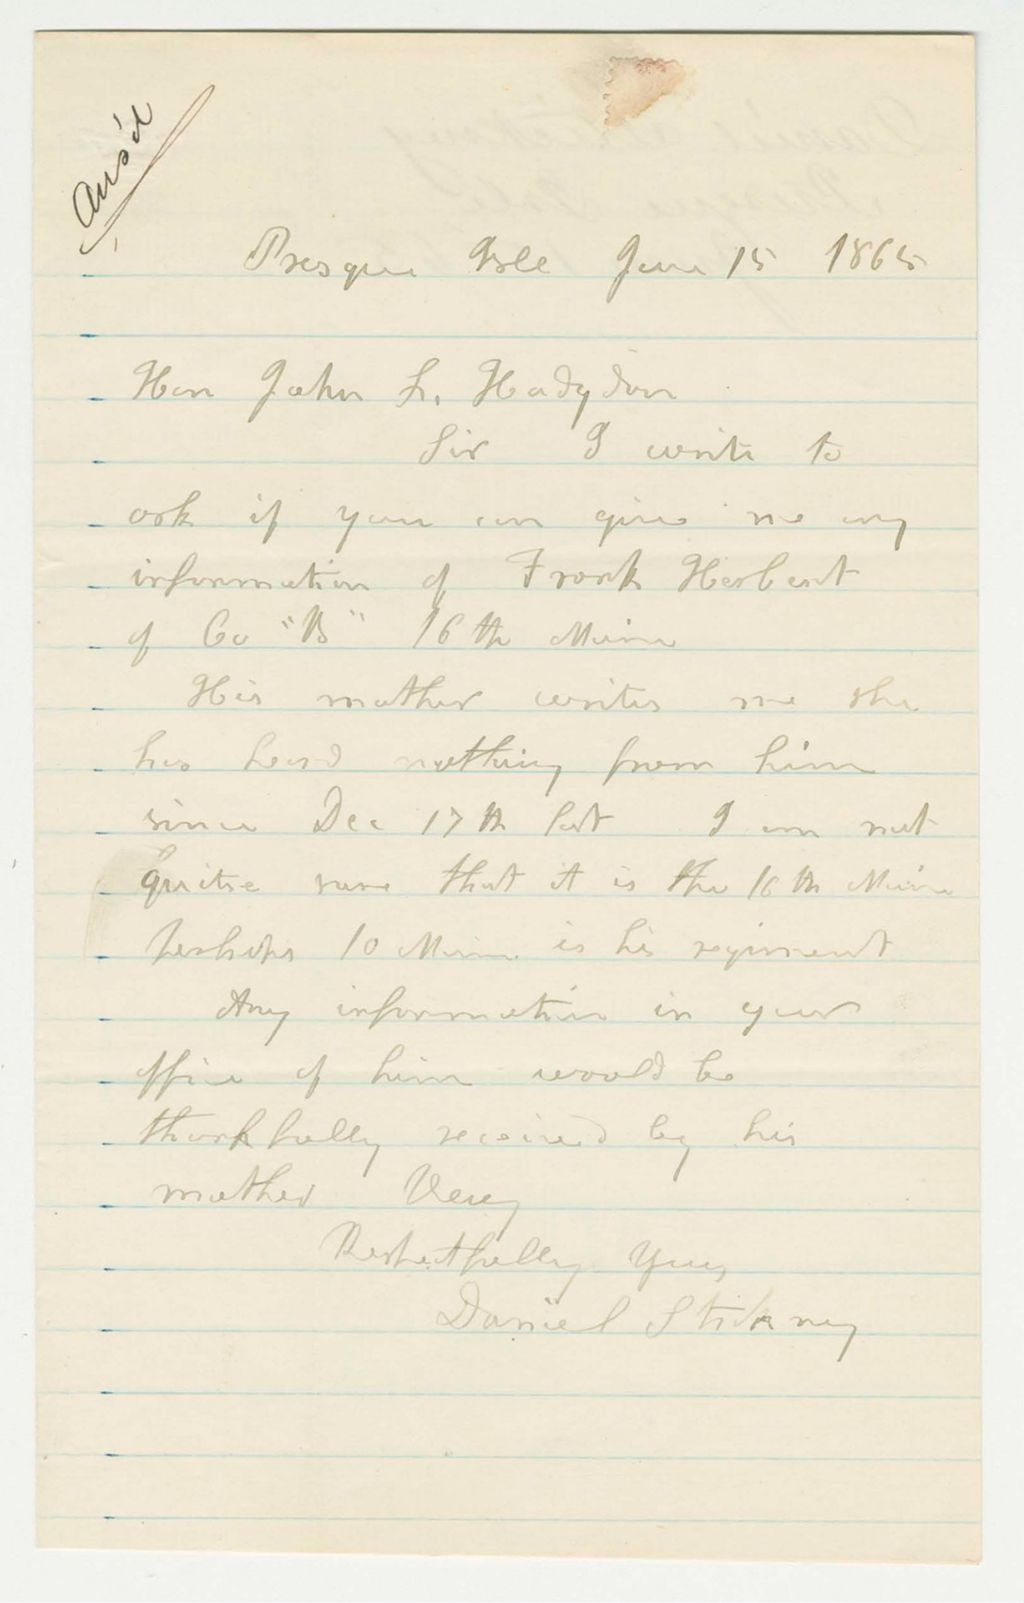 Ans'd
Presque Isle June 15 1865
Hon John L. Hodgdon
Sir I write to
ask if you can give me any
information of Frank Herbert
of Co "B" 16th Maine
His mother writes me she
has heard nothing from him
since Dec 17th last I am not
quite sure that it is the 16th Maine
perhaps 10 Maine is his regiment
Any information in your
office of him would be
thankfully received by his
mother Very
Respectfully Yours
Daniel Stickney